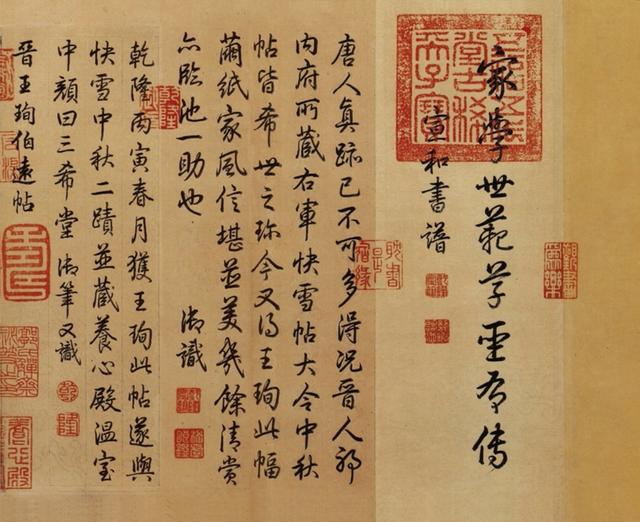 五福五代
堂古稀
天子寶
家學世範草聖有傳
宣和書譜
唐人真跡已不可多得況晉人耶
內府所藏右軍快雪帖大令中秋
帖皆希世之珍今又得王珣此幅
繭紙家風信堪並美幾餘清賞
亦臨池一助也 御識
乾隆
乾隆丙寅春月獲王珣此帖遂與
快雪中秋二蹟並藏養心殿溫室
中顏曰三希堂御筆又識
乾
隆
晉王珣伯遠帖